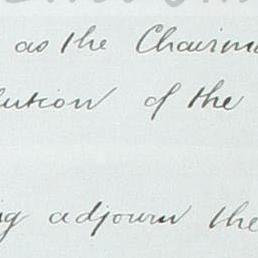 as the Chairma
lution of the
ng adjourn the